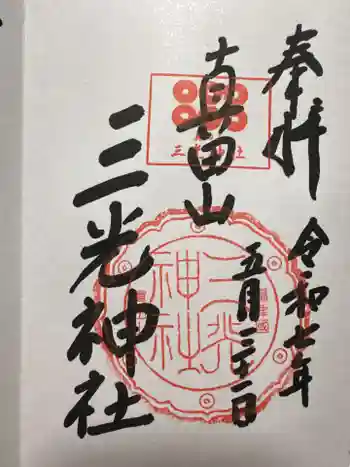 奉拝
令和七年
真田山
五月三十一日
三光神社
三光神社
三光神社